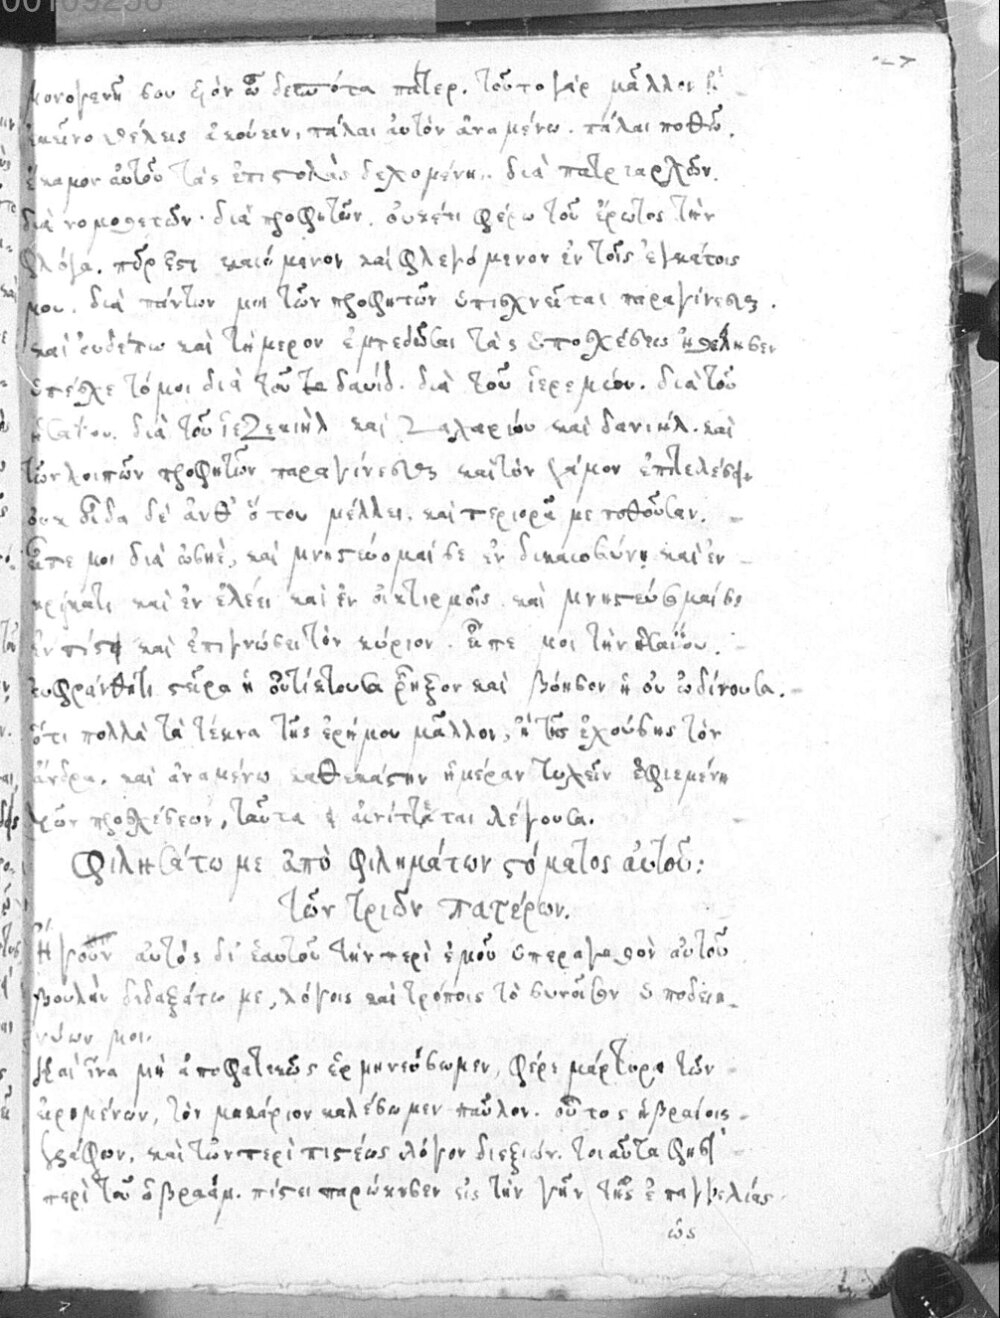 00109256
μονογενῆ σου υἱὸν ὦ δέσποτα πάτερ. τοῦτο γὰρ μᾶλλον ἢ
ἐκεῖνο θέλεις ἀκούειν, πάλαι αὐτὸν ἀναμένω. πάλαι ποθῶ.
ἔκαμον αὐτοῦ τὰς ἐπιστολὰς δεχομένη. διὰ πατριαρχῶν.
διὰ νομοθετῶν. διὰ προφητῶν. οὐκέτι φέρω τοῦ ἔρωτος τὴν
φλόγα. πῦρ ἔστι καιόμενον καὶ φλεγόμενον ἐν τοῖς ἐγκάτοις
μου. διὰ πάντων μοι τῶν προφητῶν ὑπισχνεῖται παραγίνεσθαι.
καὶ οὐδέπω καὶ τήμερον ἐμπεδῶσαι τὰς ὑποσχέσεις ἠθέλησεν
ὑπέσχετό μοι διὰ τοῦ δαυίδ. διὰ τοῦ ἱερεμίου. διὰ τοῦ
ἡσαΐου. διὰ τοῦ ἰεζεκιὴλ καὶ ζαχαρίου καὶ δανιήλ. καὶ
τῶν λοιπῶν προφητῶν παραγίνεσθαι καὶ τὸν γάμον ἐπιτελέσαι
οὐκ οἶδα δὲ ἀνθ' ὅτου μέλλει. καὶ περιορᾷ με ποθοῦσαν.
εἶπε μοι διὰ ὠσηὲ, καὶ μνηστεύσομαί σε ἐν δικαιοσύνῃ καὶ ἐν
κρίματι καὶ ἐν ἐλέει καὶ ἐν οἰκτιρμοῖς καὶ μνηστεύσομαί σε
ἐν πίστει καὶ ἐπιγνώσει τὸν κύριον. εἶπε μοι τὴν ἡσαΐου.
εὐφράνθητι στεῖρα ἡ οὐ τίκτουσα ῥῆξον καὶ βόησον ἡ οὐκ ὠδίνουσα.
ὅτι πολλὰ τὰ τέκνα τῆς ἐρήμου μᾶλλον, ἢ τῆς ἐχούσης τὸν
ἄνδρα. καὶ ἀναμένω καθεκάστην ἡμέραν τυχεῖν ἐφιεμένη
τῶν προσχέσεων, ταῦτα αἰνίττεται λέγουσα.
Φιλησάτω με ἀπὸ φιλημάτων στόματος αὐτοῦ:
τῶν τριῶν πατέρων.
Ἤγουν αὐτὸς δι' ἑαυτοῦ τὴν περὶ ἐμοῦ ὑπεραγαθὸν αὐτοῦ
βουλὴν διδαξάτω με, λόγοις καὶ τρόποις τὸ συνοῖσον ὑποδεικ-
νύων μοι.
Καὶ ἵνα μὴ ἀποφατικῶς ἑρμηνεύσωμεν, φέρε μάρτυρα τῶν
εἰρημένων, τὸν μακάριον καλέσωμεν παῦλον. οὗτος ἑβραίοις
γράφων, καὶ τῶν περὶ πίστεως λόγον διεξιών. τοιαῦτα φησὶ
περὶ τοῦ ἀβραάμ. πίστει παρώκησεν εἰς τὴν γῆν τῆς ἐπαγγελίας
ὡς